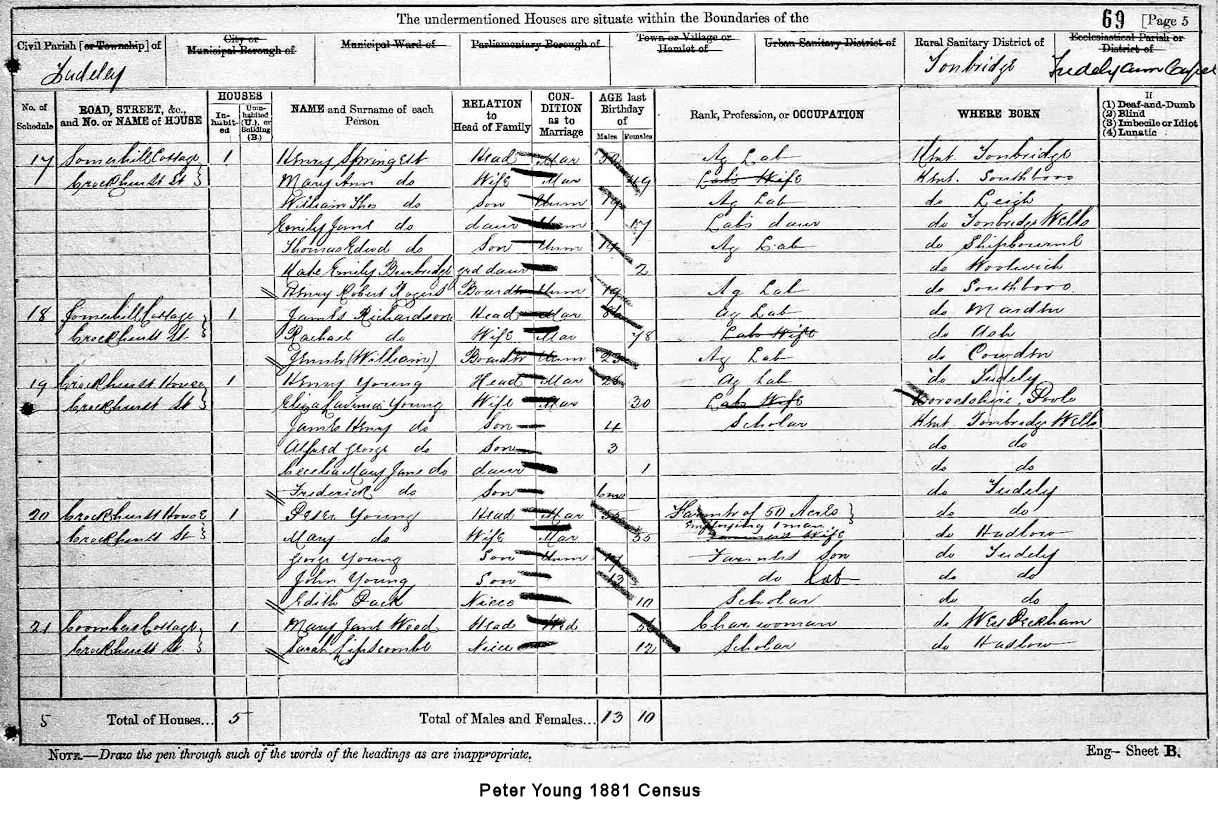 The undermentioned Houses are situate within the Boundaries of the
69 [Page 5
Civil Parish [or Township] of City or Municipal Borough of Municipal Ward of Parliamentary Borough of Town or Village or Hamlet of Urban Sanitary District of Rural Sanitary District of Ecclesiastical Parish or District of
Tudeley Tonbridge Tudely Capel
No. of Schedule ROAD, STREET, &c., and No. or NAME of HOUSE HOUSES Inhabited Uninhabited (U.), or Building (B.) NAME and Surname of each Person RELATION to Head of Family CONDITION as to Marriage AGE last Birthday of Males Females Rank, Profession, or OCCUPATION WHERE BORN If (1) Deaf-and-Dumb (2) Blind (3) Imbecile or Idiot (4) Lunatic
17 Somerhill Cottage 1 Henry Springett Head Mar Ag Lab Kent Tonbridge
Crockhurst St Mary Ann do Wife Mar 49 Labs Wife Kent. Southboro
William Thos do Son Unm 19 Ag Lab do Leigh
Emily Jane do daur Unm 17 Labs daur do Tonbridge Wells
Thomas Edwd do Son Unm 14 Ag Lab do Shipbourne
Kate Emily Burbridge grd daur 2 do Woolwich
Henry Robert Rogers Boarder Unm 19 Ag Lab do Southboro
18 Somerhill Cottage 1 James Richardson Head Mar Ag Lab do Marden
Crockhurst St Rachael do Wife Mar 78 Labs Wife do Ash
(William) Boarder Unm 23 Ag Lab do Cowden
19 Crockhurst House 1 Henry Young Head Mar 26 Ag Lab do Tudely
Crockhurst St Eliza Lavinia Young Wife Mar 30 Labs Wife Dorsetshire, Poole
James Henry do Son 4 Scholar Kent Tonbridge Wells
Alfred George do Son 3 do do
Cecelia Mary Jane do daur 1 do do
Frederick do Son 6mo do Tudely
20 Crockhurst House 1 Peter Young Head Mar Farmer of 50 Acres do do
Employing 1 man
Crockhurst St Mary do Wife Mar 55 Farmers Wife do Hadlow
George Young Son Unm 17 Farmers Son do Tudely
John Young Son 12 do Lab do do
Edith Pack Niece 10 Scholar do do
21 Coombers Cottage 1 Mary Jane Weed Head Wid 56 Charwoman do West Peckham
Crockhurst St. Sarah Lipscombe Niece 12 Scholar do Hadlow
5 Total of Houses... 5 Total of Males and Females... 13 10
NOTE.—Draw the pen through such of the words of the headings as are inappropriate.
Eng— Sheet B.
Peter Young 1881 Census